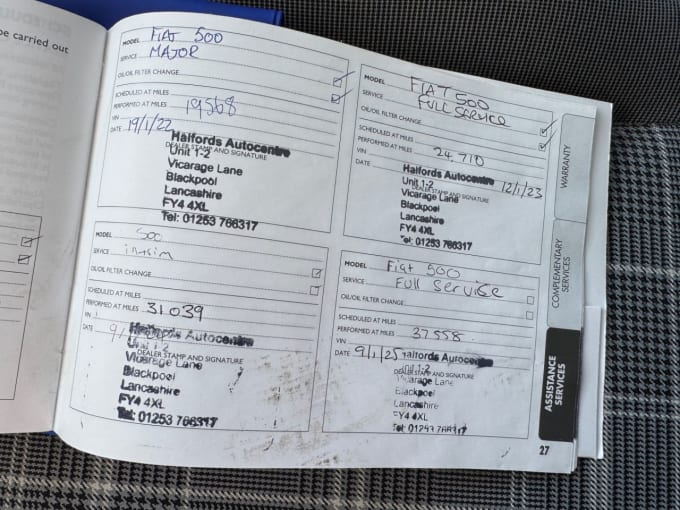 be carried out
MODEL FIAT 500
SERVICE MAJOR
OIL/OIL FILTER CHANGE
SCHEDULED AT MILES
PERFORMED AT MILES 19568
VIN
DATE 19/1/22
Halfords Autocentre
DEALER STAMP AND SIGNATURE
Unit 1-2
Vicarage Lane
Blackpool
Lancashire
FY4 4XL
Tel: 01253 766317
MODEL FIAT 500
SERVICE FULL SERVICE
OIL/OIL FILTER CHANGE
SCHEDULED AT MILES
PERFORMED AT MILES 24,710
VIN
DATE 12/1/23
Halfords Autocentre
Unit 1-2
DEALER STAMP AND SIGNATURE
Vicarage Lane
Blackpool
Lancashire
FY4 4XL
Tel: 01253 766317
MODEL 500
SERVICE interim
OIL/OIL FILTER CHANGE
SCHEDULED AT MILES
PERFORMED AT MILES 31039
VIN
DATE 9/
Halfords Autocentre
Unit 1-2
DEALER STAMP AND SIGNATURE
Vicarage Lane
Blackpool
Lancashire
FY4 4XL
Tel: 01253 766317
MODEL Fiat 500
SERVICE Full Service
OIL/OIL FILTER CHANGE
SCHEDULED AT MILES
PERFORMED AT MILES 37558
VIN
DATE 9/1/25
Halfords Autocentre
Unit 1-2
DEALER STAMP AND SIGNATURE
Vicarage Lane
Blackpool
Lancashire
FY4 4XL
Tel: 01253 766317
WARRANTY
COMPLEMENTARY
SERVICES
ASSISTANCE
SERVICES
27